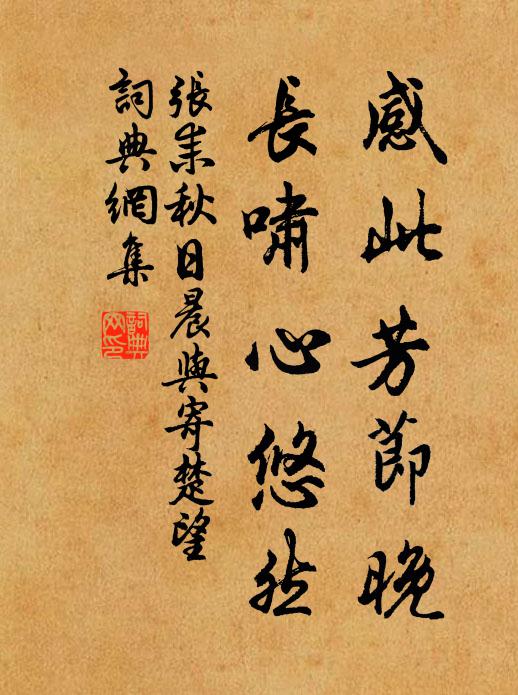 感此芳節晚
長嘯心悠然
張耒秋日晨興寄楚望
詞典網集
詞典
网印